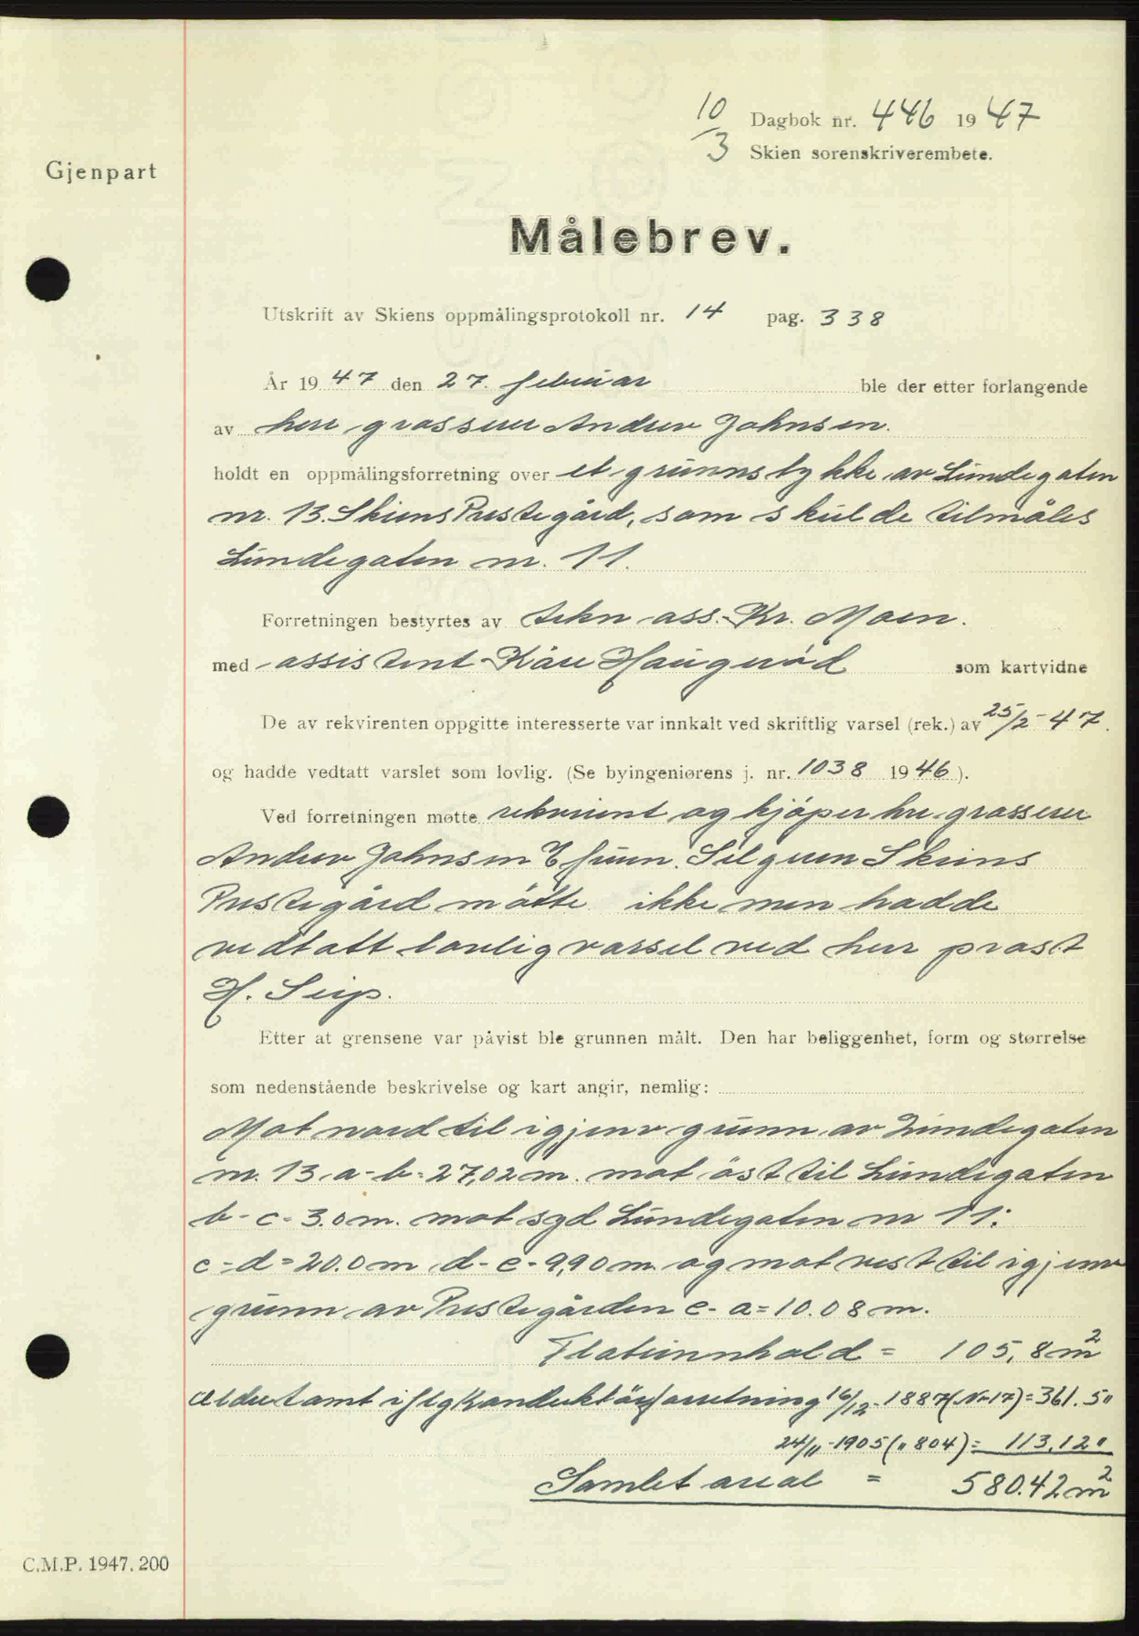 10/3 Dagbok nr. 446 1947
Skien sorenskriverembete.
Gjenpart
Målebrev.
Utskrift av Skiens oppmålingsprotokoll nr. 14 pag. 338
År 1947 den 27. februar ble der etter forlangende
av herr grosserer Andrew Johnsen.
holdt en oppmålingsforretning over et grunnstykke av Lundegaten
nr. 13. Skiens Prestegård, som skulde tilmåles
Lundegaten nr. 11.
Forretningen bestyrtes av tekn ass. Kr. Moen.
med assistent Kåre Haugerød som kartvidne
De av rekvirenten oppgitte interesserte var innkalt ved skriftlig varsel (rek.) av 25/2-47.
og hadde vedtatt varslet som lovlig. (Se byingeniørens j. nr. 1038 1946).
Ved forretningen møtte rekvirent og kjöper hr. grosserer
Andrew Johnsen Selgeren Skiens
Prestegård mötte ikke men hadde
vedtatt lovlig varsel ved herr prost
H. Seip.
Etter at grensene var påvist ble grunnen målt. Den har beliggenhet, form og størrelse
som nedenstående beskrivelse og kart angir, nemlig:
Mot nord til igjenv grunn av Lundegaten
nr. 13 a-b=27,02m. mot öst til Lundegaten
b-c=3.0m. mot syd Lundegaten nr 11:
c-d=20.0m d-e=9,90m og mot vest til igjenv
grunn av Prestegården e-a=10.08m.
Flateinnhold = 105,8m²
Eldre tomt iflg konduktörforretning 16/12-1887(Nr17)=361.50
24/11-1905("804)= 113,12"
Samlet areal = 580.42m²
C.M.P. 1947. 200